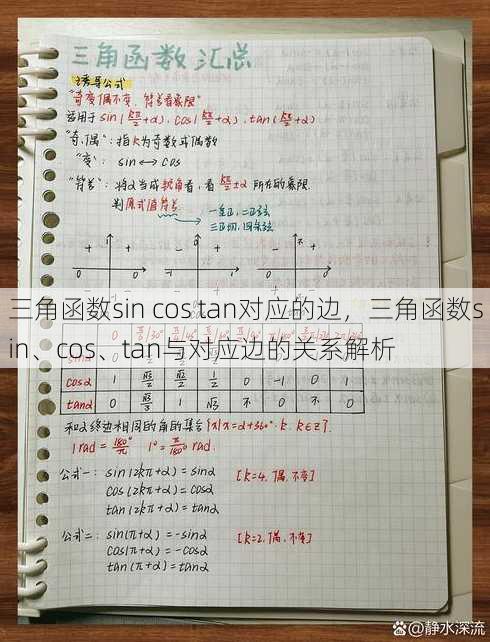 三角函数汇总
诱导公式
"奇变偶不变,符号看象限"
适用于 sin(kπ/2+α), cos(kπ/2+α), tan(kπ/2+α)
"奇、偶":指k为奇数或偶数
"变": sin⟷cos
"符号":将α当成锐角看,看kπ/2±α所在的象限.
判原式值符号
一全正,二正弦
三正切,四余弦
三角函数sin cos tan对应的边，三角函数s
in、cos、tan与对应边的关系解析
cosα 1 √3/2 √2/2 1/2 0 -1 0 1
tanα 0 √3/3 1 √3 不 0 不 0
和α终边相同的角的集合{x|x=α+360°·k, k∈Z}.
1rad=180°/π 1°=π/180° rad.
公式一: sin(2kπ+α)=sinα [k=4,偶,不变]
cos(2kπ+α)=cosα
tan(2kπ+α)=tanα
公式二: sin(π+α)=-sinα [k=2,偶,不变]
cos(π+α)=-cosα
tan(π+α)=tanα
@静水深流